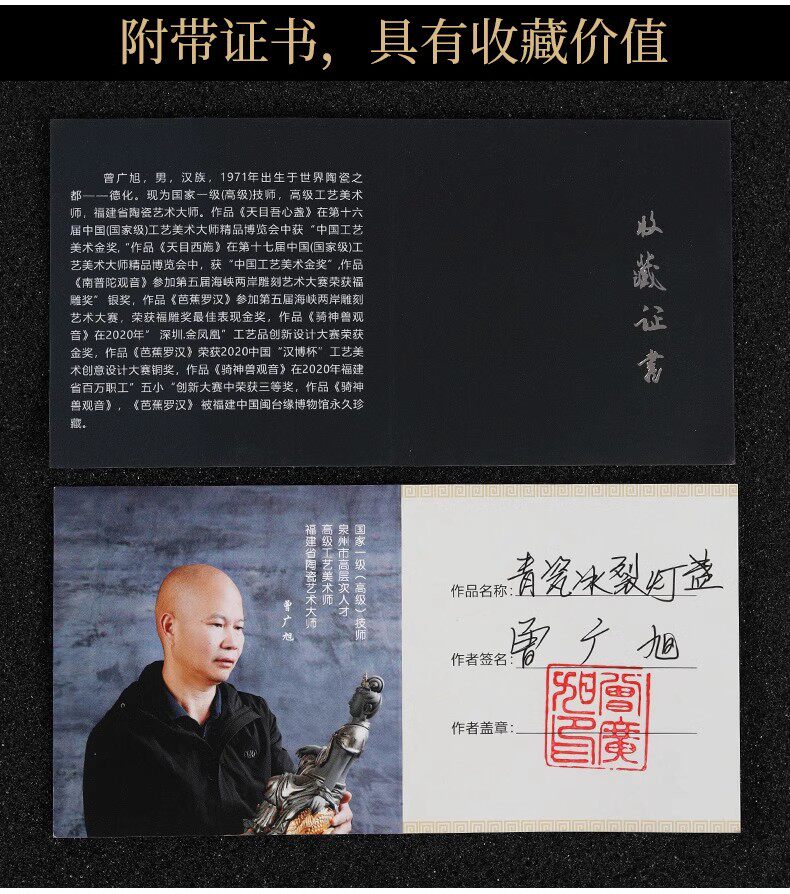 附带证书，具有收藏价值
曾广旭，男，汉族，1971年出生于世界陶瓷之
都——德化。现为国家一级(高级)技师，高级工艺美术
师，福建省陶瓷艺术大师。作品《天目吾心盏》在第十六
届中国(国家级)工艺美术大师精品博览会中获“中国工艺
美术金奖，”作品《天目西施》在第十七届中国(国家级)工
艺美术大师精品博览会中，获“中国工艺美术金奖”,作品
《南普陀观音》参加第五届海峡两岸雕刻艺术大赛荣获福
雕奖”银奖，作品《芭蕉罗汉》参加第五届海峡两岸雕刻
艺术大赛，荣获福雕奖最佳表现金奖，作品《骑神兽观
音》在2020年”深圳.金凤凰”工艺品创新设计大赛荣获
金奖，作品《芭蕉罗汉》荣获2020中国“汉博杯”工艺美
术创意设计大赛铜奖，作品《骑神兽观音》在2020年福建
省百万职工”五小“创新大赛中荣获三等奖，作品《骑神
兽观音》，《芭蕉罗汉》被福建中国闽台缘博物馆永久珍
藏。
收藏证书
国家一级（高级）技师
泉州市高层次人才
高级工艺美术师
福建省陶瓷艺术大师
曾广旭
作品名称：青瓷冰裂灯盏
作者签名：曾广旭
作者盖章：
曾廣旭印